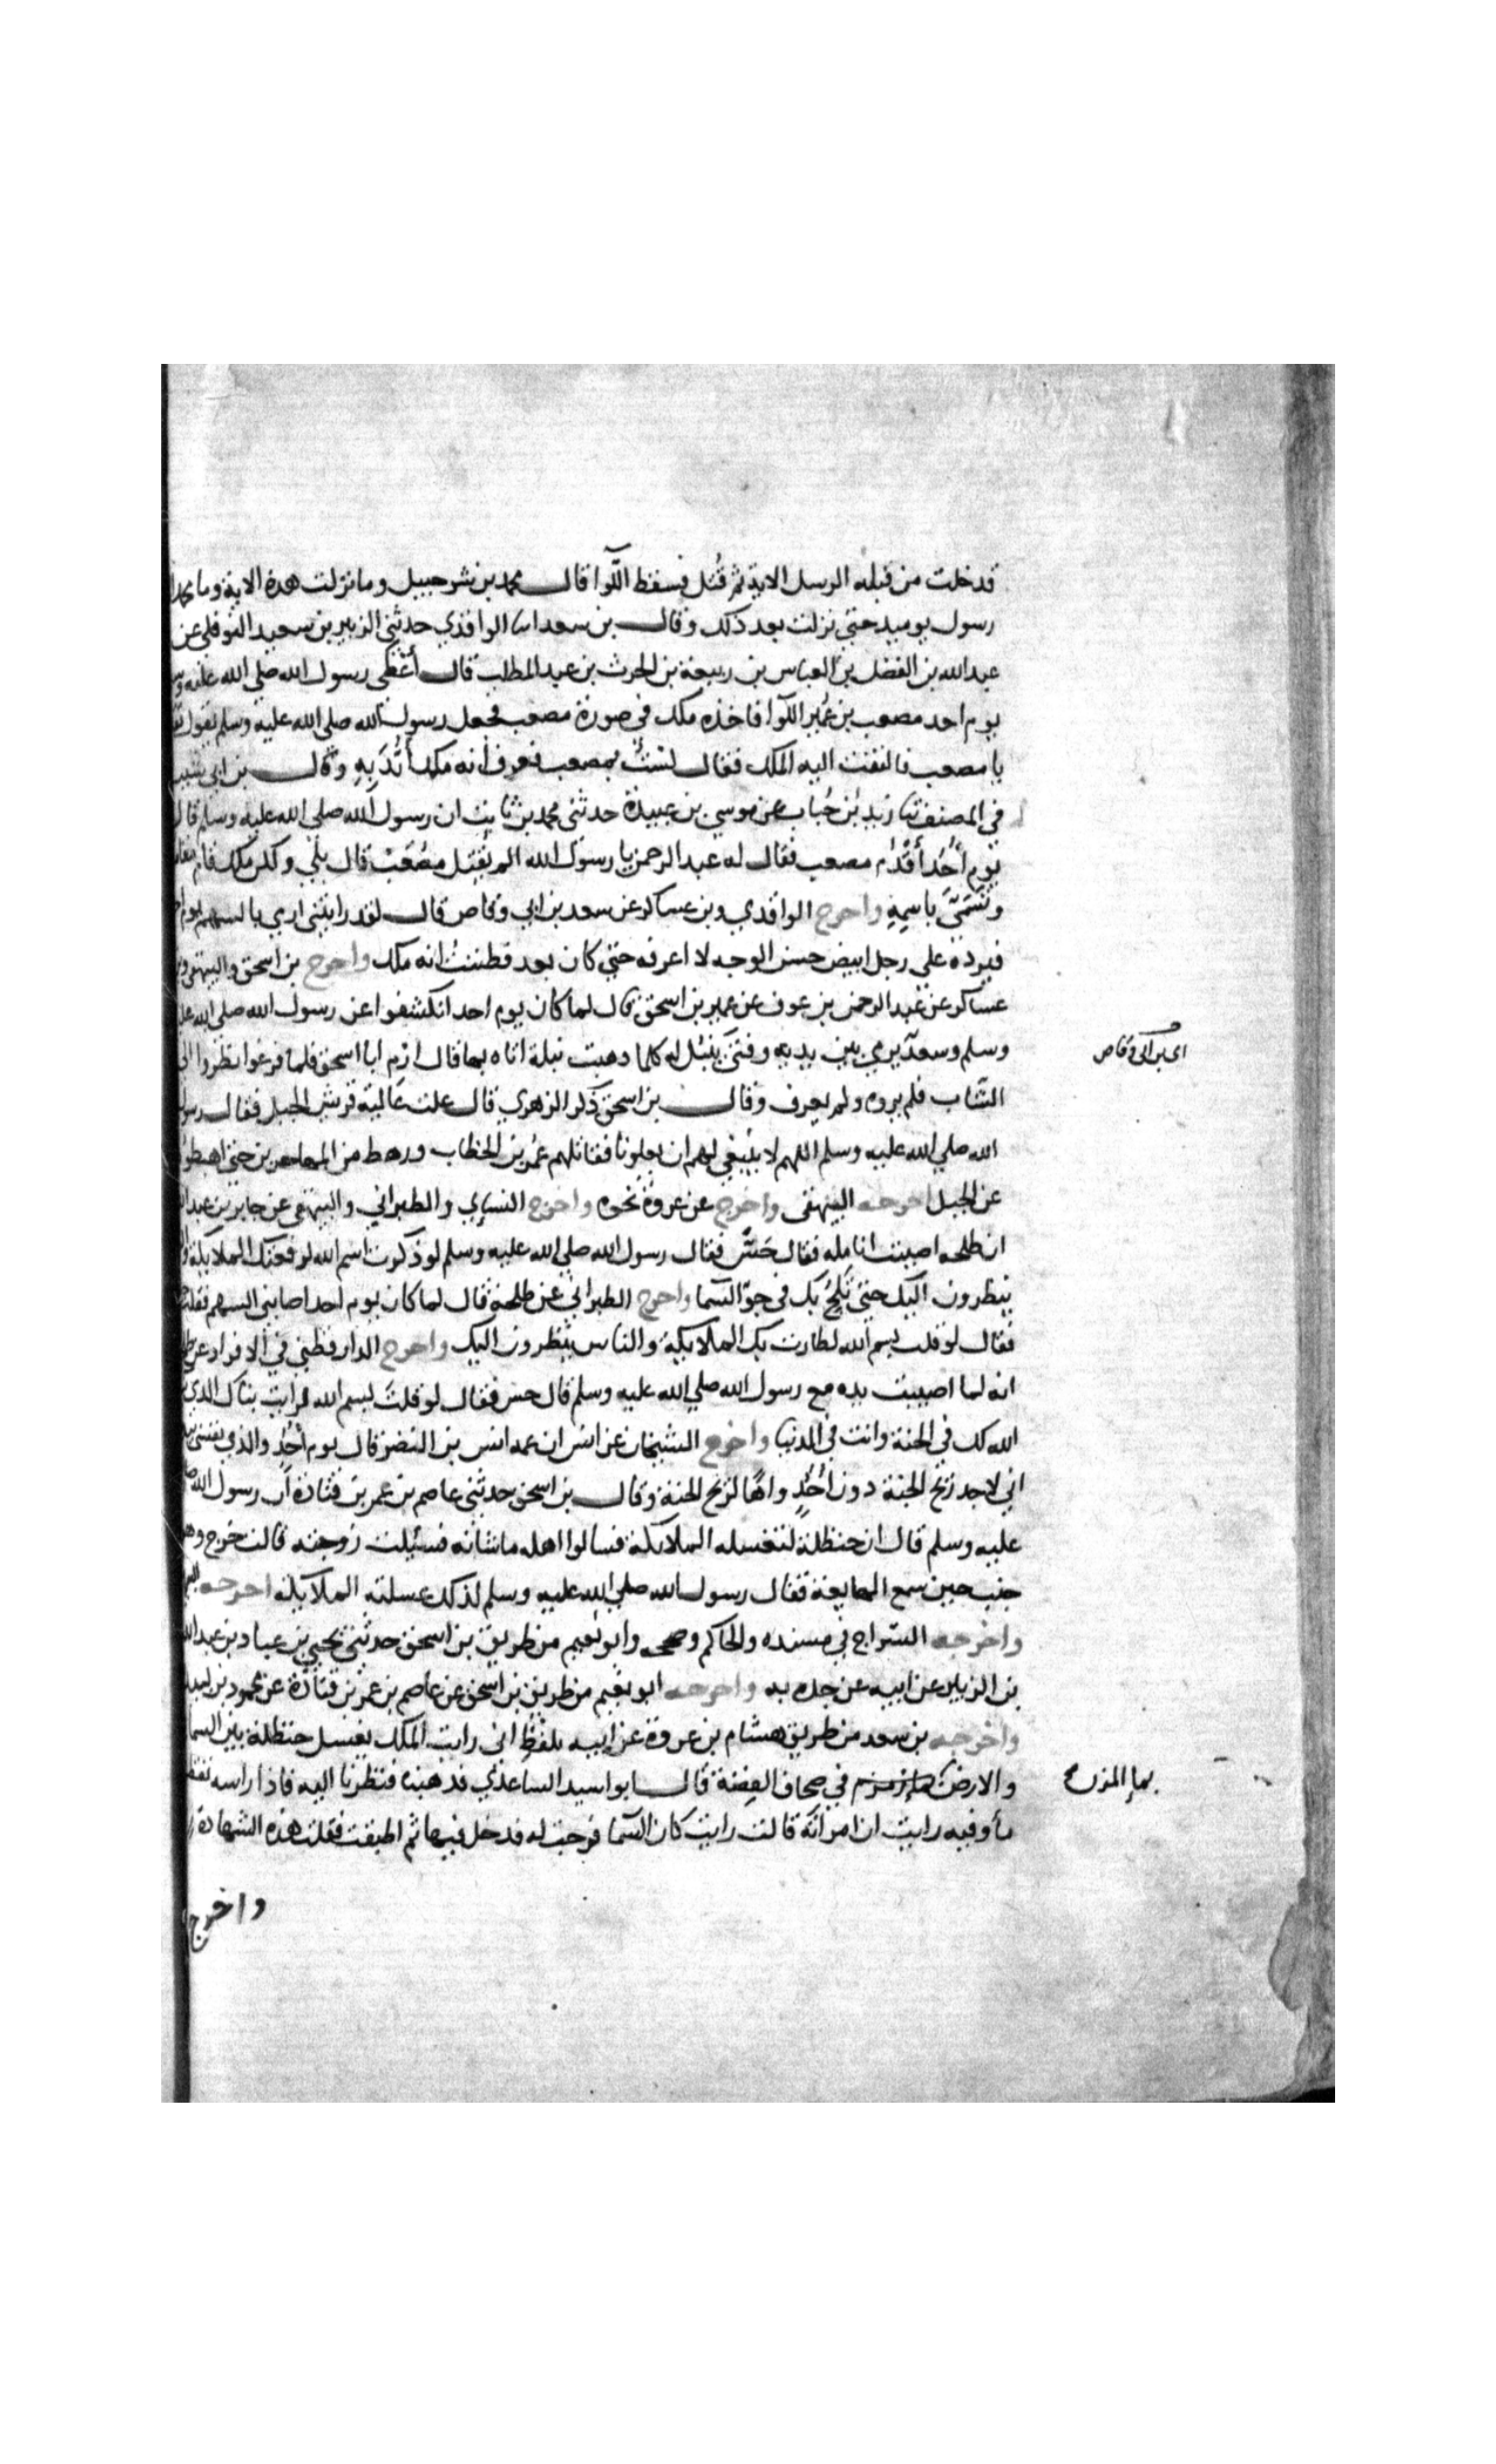 قد خلت من قبله الرسل الاية ثم قتل فسقط اللوا قال محمد بن شرحبيل وما نزلت هذه الاية وما محمد الا
رسول يوميد حتي نزلت بعد ذلك وقال بن سعد انا الواقدي حدثني الزبير بن سعيد النوفلي عن
عبد الله بن الفضل بن العباس بن ربيعة بن الحرث بن عبد المطلب قال أعْطى رسول الله صلي الله عليه وس
يوم احد مصعب بن عُمير اللوا فاخذه ملك في صورة مصعب فجعل رسول الله صلي الله عليه وسلم يقول
يا مصعب فالتفت اليه الملك فقال لستُ بمصعب فعرف أنه ملك أُيّدَ بِهِ وقال بن ابي شيبه
في المصنف ثنا زيد بن حُباب عن موسي بن عبيدة حدثني محمد بن ثابت ان رسول الله صلي الله عليه وسلم قال
يوم أُحُد أَقْدِم مصعب فقال له عبد الرحمن يا رسول الله الم يُقتل مصْعَبْ قال بلي ولكن ملك قام مقامه
وتسَمّيَ باسمِهِ واخرج الواقدي وبن عساكر عن سعد بن ابي وقاص قال لقد رايتني ارمي بالسهم يوم
فيرده علي رجل ابيض حسن الوجه لا اعرفه حتي كان بعد فظننتُ انه ملك واخرج بن اسحق والبيهقي وبن
عساكر عن عبد الرحمن بن عوف عن عمير بن اسحق قال لما كان يوم احد انكشفوا عن رسول الله صلي الله عل
وسلم وسعدٌ يرمي بين يديه وفتيً ينبّل له كلما دهبت نبلة اتاه بها قال ارْمِ ابا اسحق فلما فرغوا نظروا الي
اي بن ابي وقاص
الشّاب فلم يروه ولم يعرف وقال بن اسحق ذكر الزهري قال علت عالية قريش الجبل فقال رسول
الله صلي الله عليه وسلم اللهم لا ينبغي لهم ان يعلونا فقاتلهم عمر بن الخطاب ورهط من المهاجرين حتي اهبطوا
عن الجبل اخرجه البيهقى واخرج عن عروة نحوه واخرج النسايي والطبراني والبيهقي عن جابر بن عبد
ان طلحه اصيبت انامله فقال حَسّ فقال رسول الله صلي الله عليه وسلم لو ذكرت اسم الله لرفعتك الملايكة
ينظرون اليك حتي تَلِجُ بك في جوّ السما واخرج الطبراني عن طلحة قال لما كان يوم احد اصابني السهم فقلت
فقال لو قلت بسم الله لطارت بك الملايكة والناس ينظرون اليك واخرج الدارقطني في الافراد عن
انه لما اصيبت يده مع رسول الله صلي الله عليه وسلم قال حس فقال لو قلتَ بسم الله لرايت بناك الذي
الله لك في الجنة وانت في الدنيا واخرج الشيخان عن انس ان عمه انس بن النضر قال يوم أُحُدٍ والذي نفسي
اني لاجد ريح الجنة دون أُحُدٍ واهًا لريح الجنة وقال بن اسحق حدثني عاصم بن عمر بن قتادة ان رسول الله
عليه وسلم قال ان حنظلة لتغسله الملائكة فسالوا اهله ما شانه فسئلت زوجته قالت خرج وهو
جنب حين سمع الهايعة فقال رسول الله صلي الله عليه وسلم لذلك غسلته الملايكة اخرجه
واخرجه السّراج في مسنده والحاكم وصححه وابو نُعيم من طريق بن اسحق حدثني يحيي بن عباد بن عبد الله
بن الزبير عن ابيه عن جده به واخرجه ابو نعيم من طريق بن اسحق عن عاصم بن عمر بن قتادة عن محمود بن لبيد
واخرجه بن سعد من طريق هشام بن عروة عن ابيه بلفظِ اني رايت الملك يغسل حنظلة بين السما
والارض في صحاف الفِضة قال ابو اسيد الساعدي فدهبنا فنظرنا اليه فاذا راسه تقطر
بما المزن
مأ وفيه رايت ان امراته قالت رايت كان السما فرجت له فدخل فيها ثم اطبقت فقلت هذه الشهادة
واخرج